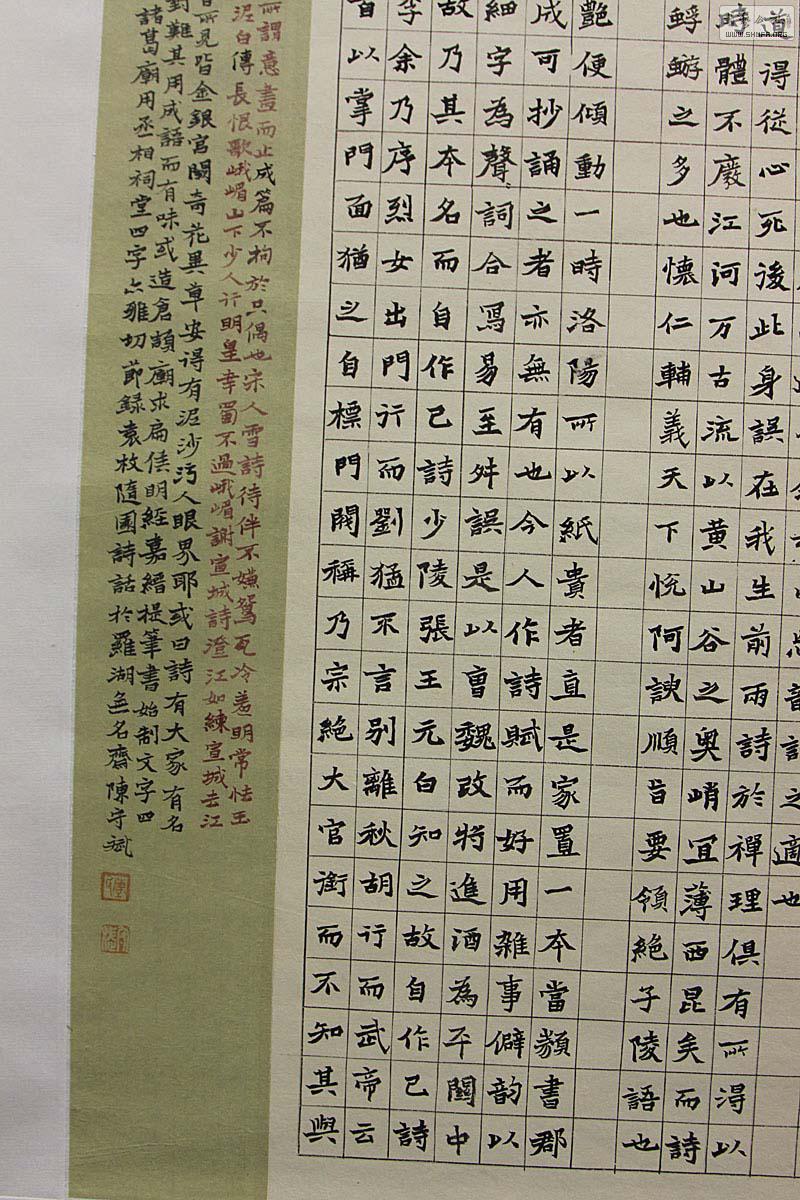 之適也
道得從心死後此身誤在我生前雨詩於禪理俱有所得以
時體不廢江河万古流以黄山谷之奥峭宜薄西昆矣而詩
蜉蝣之多也懷仁輔義天下悅阿諛順旨要領絕子陵語也
艷便傾動一時洛陽所以紙貴者直是家置一本當類書郡
成可抄誦之者亦無有也今人作詩賦而好用雜事僻韵以
細字為聲詞合寫易至舛誤是以曹魏改將進酒為平關中
故乃其本名而自作己詩少陵張王元白知之故自作己詩
李余乃序烈女出門行而劉猛不言别離秋胡行而武帝云
以掌門面猶之自標門閥稱乃宗絕大官銜而不知其與
所謂意盡而止成篇不拘於只偶也宋人雪詩待伴不嫌鴛瓦冷羞明常怯玉
泥白傳長恨歌峨嵋山下少人行明皇幸蜀不過峨嵋謝宣城詩澄江如練宣城去江
所見皆金銀宮闕奇花異草安得有泥沙污人眼界耶或曰詩有大家有名
對難其用成語而有味或造倉頡廟求扁佳明經嘉縉提筆書始制文字四
諸葛廟用丞相祠堂四字亦雅切節録袁枚隨園詩話於羅湖無名齋陳守斌
WWW.SHUFA.ORG